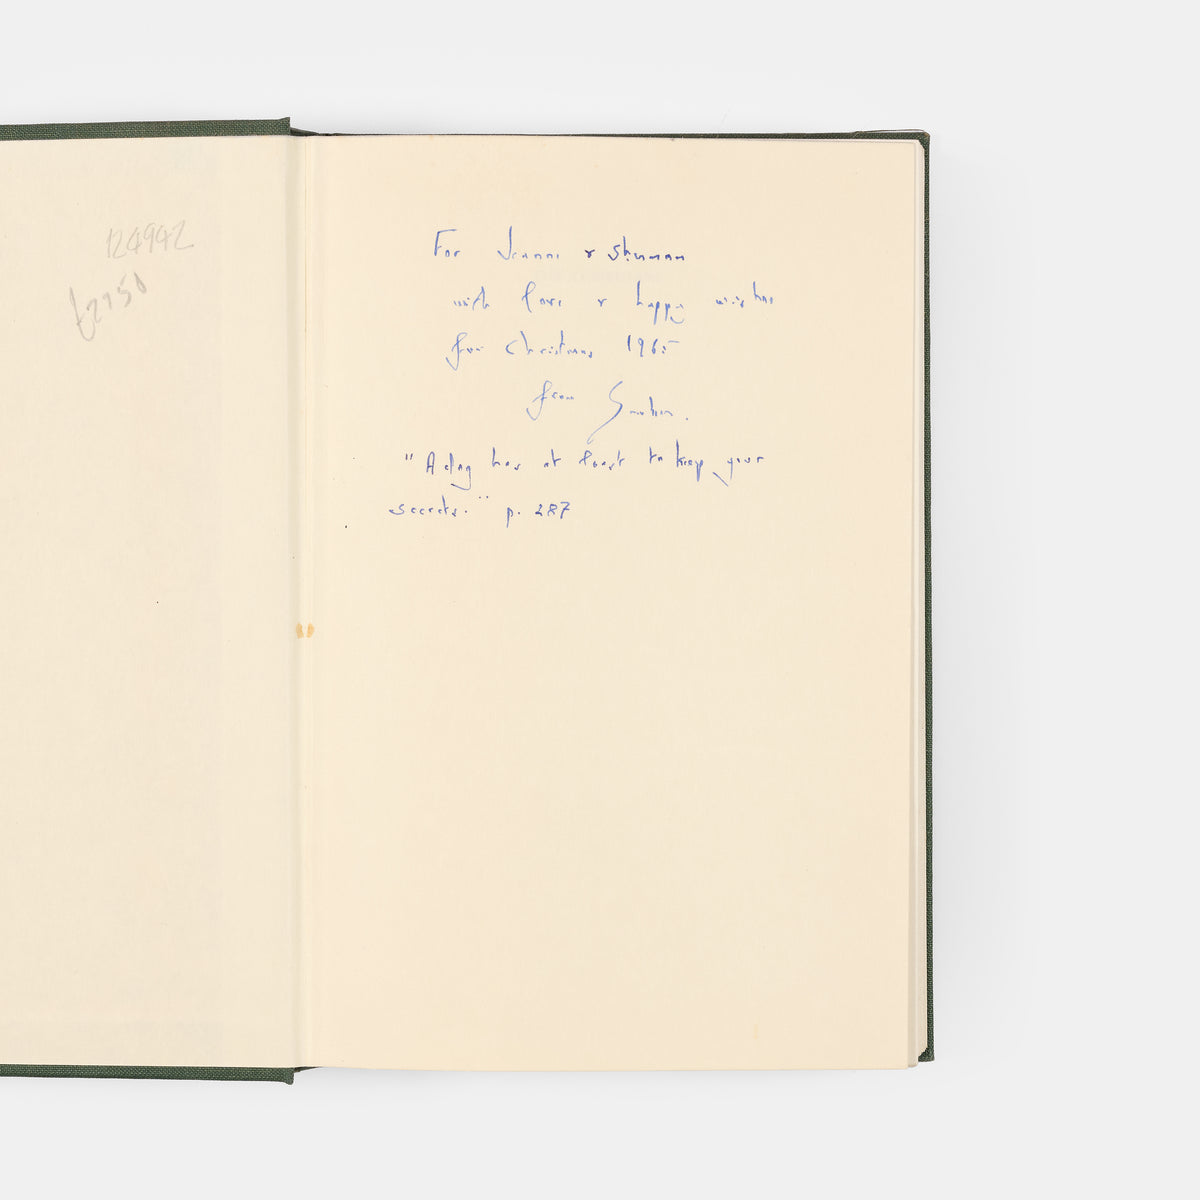 124942
£2750
For Jeanne & Sherman
with love & happy wishes
for Christmas 1965
from Graham.
"A dog has at least to keep your
secrets." p. 287